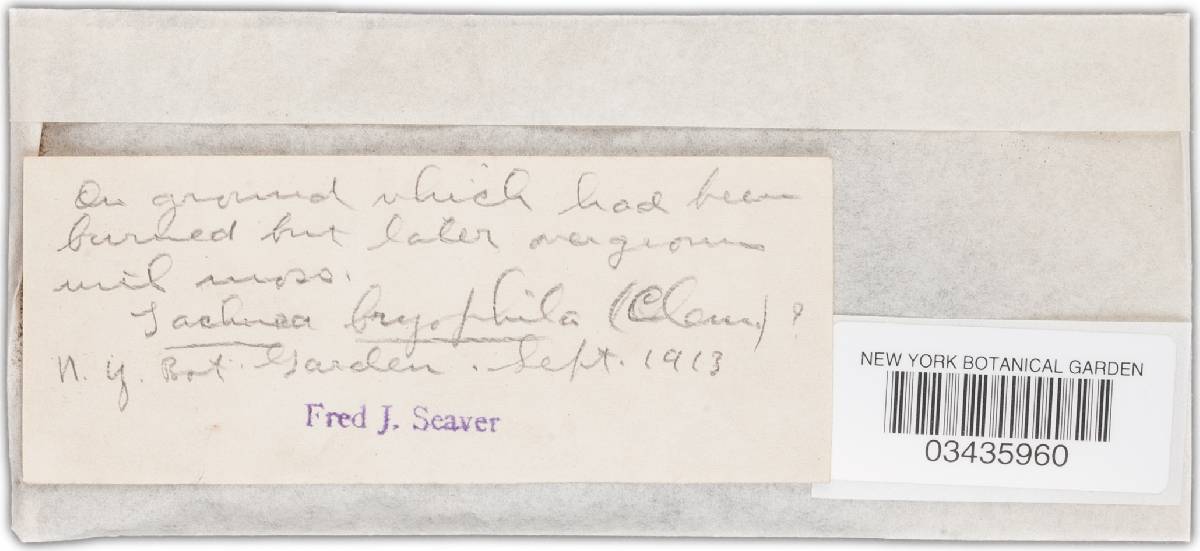 On ground which had been
burned but later overgrown
with moss.
Lachnea bryophila (Clem.) ?
N. Y. Bot. Garden. Sept. 1913
Fred J. Seaver
NEW YORK BOTANICAL GARDEN
03435960